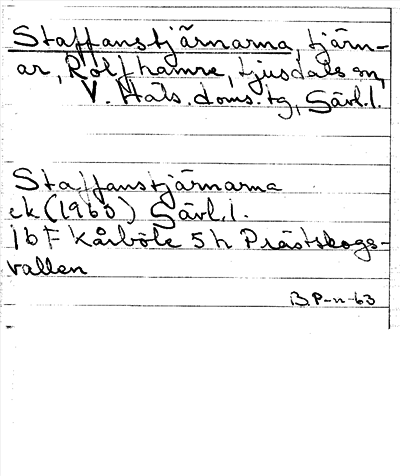 Staffanstjärnarna, tjärn-
ar, Rolfhamre, Ljusdals sn,
V. Häls. doms. tg, Gävl. l.
Staffanstjärnarna
ek (1960) Gävl. l.
16 F Kårböle 5 h Prästskogs-
vallen
B.P-n-63